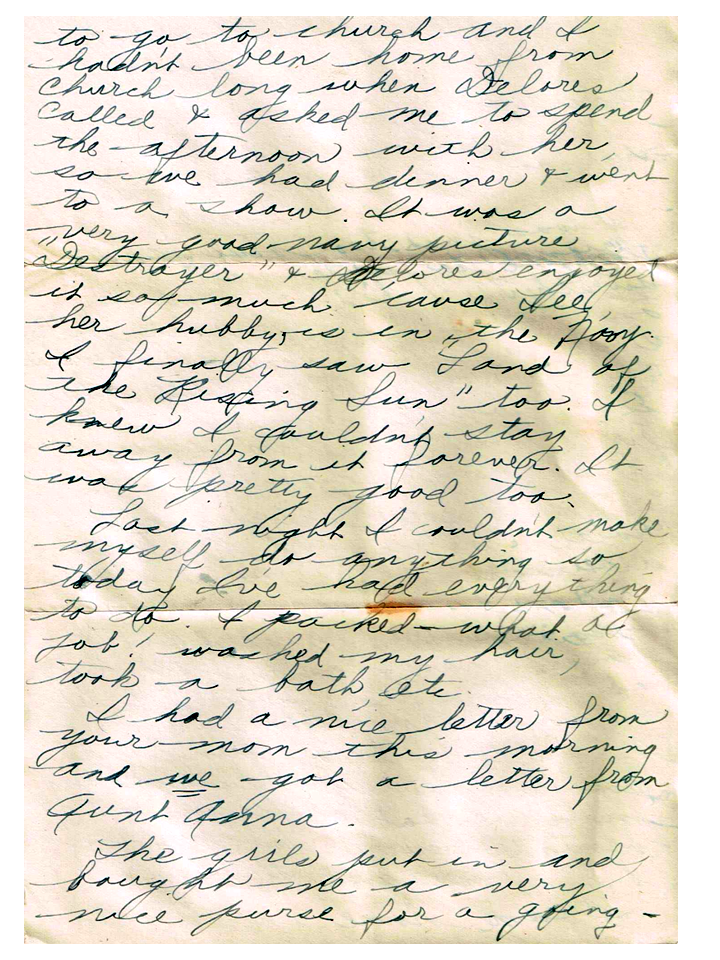 to go to church and I
hadn't been home from
church long when Delores
called & asked me to spend
the afternoon with her,
so we had dinner & went
to a show. It was a
very good navy picture
"Destroyer" & Delores enjoyed
it so much 'cause Lee,
her hubby, is in the Navy.
I finally saw "Land of
the Rising Sun" too. I
knew I couldn't stay
away from it forever. It
was pretty good too.
Last night I couldn't make
myself do anything so
today I've had everything
to do. I packed - what a
job! washed my hair,
took a bath etc.
I had a nice letter from
your mom this morning
and we got a letter from
Aunt Anna.
The grils put in and
bought me a very
nice purse for a going -